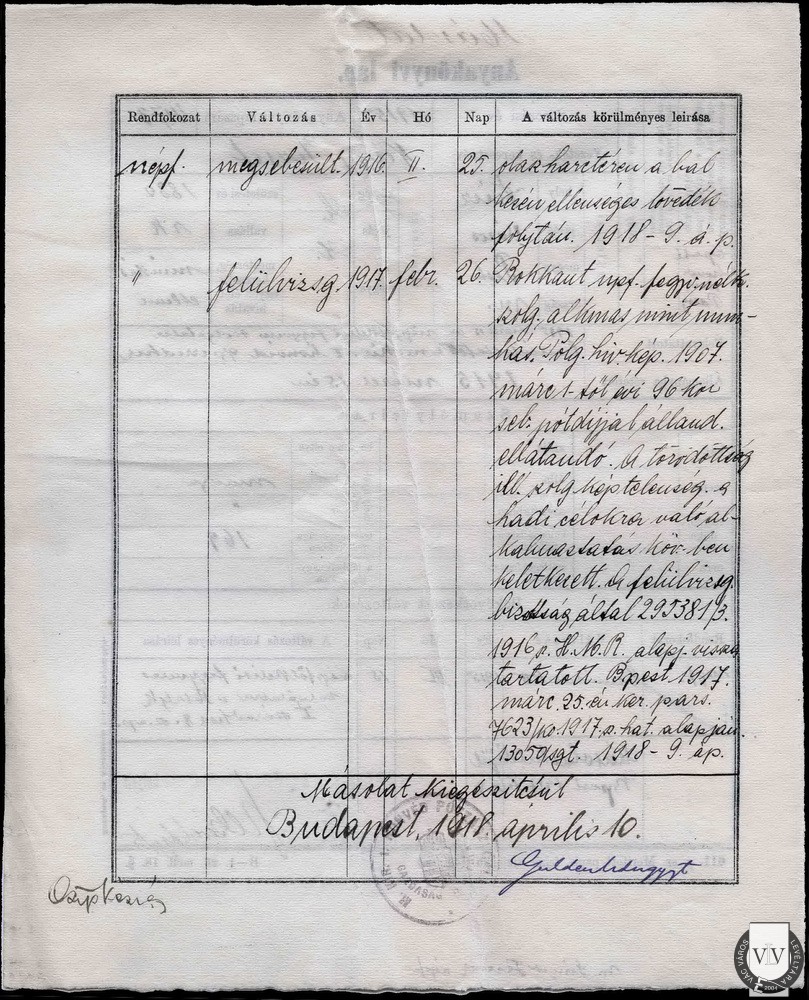 Rendfokozat Változás Év Hó Nap A változás körülményes leirása
népf. megsebesült. 1916. II. 25. olasz harctéren a bal
kezén ellenséges lövedék
folytán. 1918 - 9. á. p.
" felülvizsg. 1917. febr. 26. Rokkant npf. fegy. nélk.
szolg. alkmas, mint mun-
kás. Polg. hiv. kép. 1907.
márc 1-től évi 96 kor
seb. pótdíjjal álland.
ellátandó. A törődöttség
ill. szolg képtelenség a
hadi célokra való al-
kalmaztatás köv. ben
keletkezett. A felülvizsg.
bizottság által 295381/3.
1916 s. H. M. R. alapj. vissza
tartatott. Bpest 1917.
márc. 25. én ker. pars.
7623/ko. 1917. s. hat. alapján.
1918 - 9. áp.
Másolat kiegészitésül
Budapest, 1918. április 10.
VÁC VÁROS LEVÉLTÁRA
VLV
2004